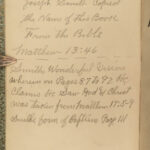 Joseph Smith Copied
the Name of this Book
From the Bible
Matthew 13:46
Smiths Wonderful Vision
wherein on Pages 57 to 72 he
Claims he Saw God & Christ
was taken from Matthew 17:5-9
Smiths form of Baptism Page 111